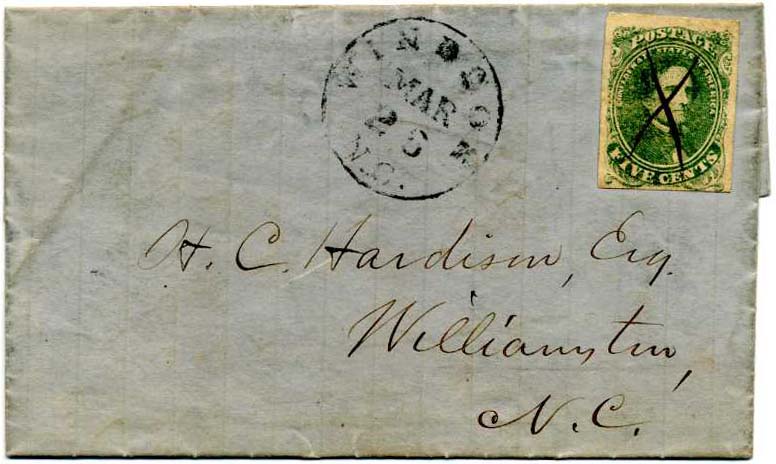 WINDSOR
MAR
26
N.C.
POSTAGE
CONFEDERATE STATES OF AMERICA
FIVE CENTS
H. C. Hardison, Esq.
Williamston,
N.C.